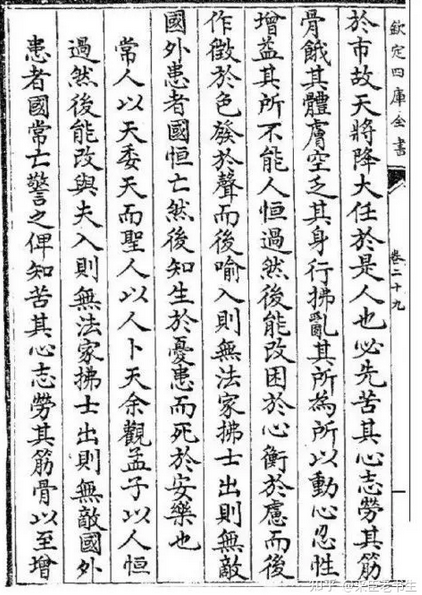 欽定四庫全書
卷二十九
於市故天將降大任於是人也必先苦其心志勞其筋
骨餓其體膚空乏其身行拂亂其所為所以動心忍性
增益其所不能人恒過然後能改困於心衡於慮而後
作徵於色發於聲而後喻入則無法家拂士出則無敵
國外患者國恒亡然後知生於憂患而死於安樂也
常人以天委天而聖人以人卜天余觀孟子以人恒
過然後能改與夫入則無法家拂士出則無敵國外
患者國常亡警之俾知苦其心志勞其筋骨以至增
知乎